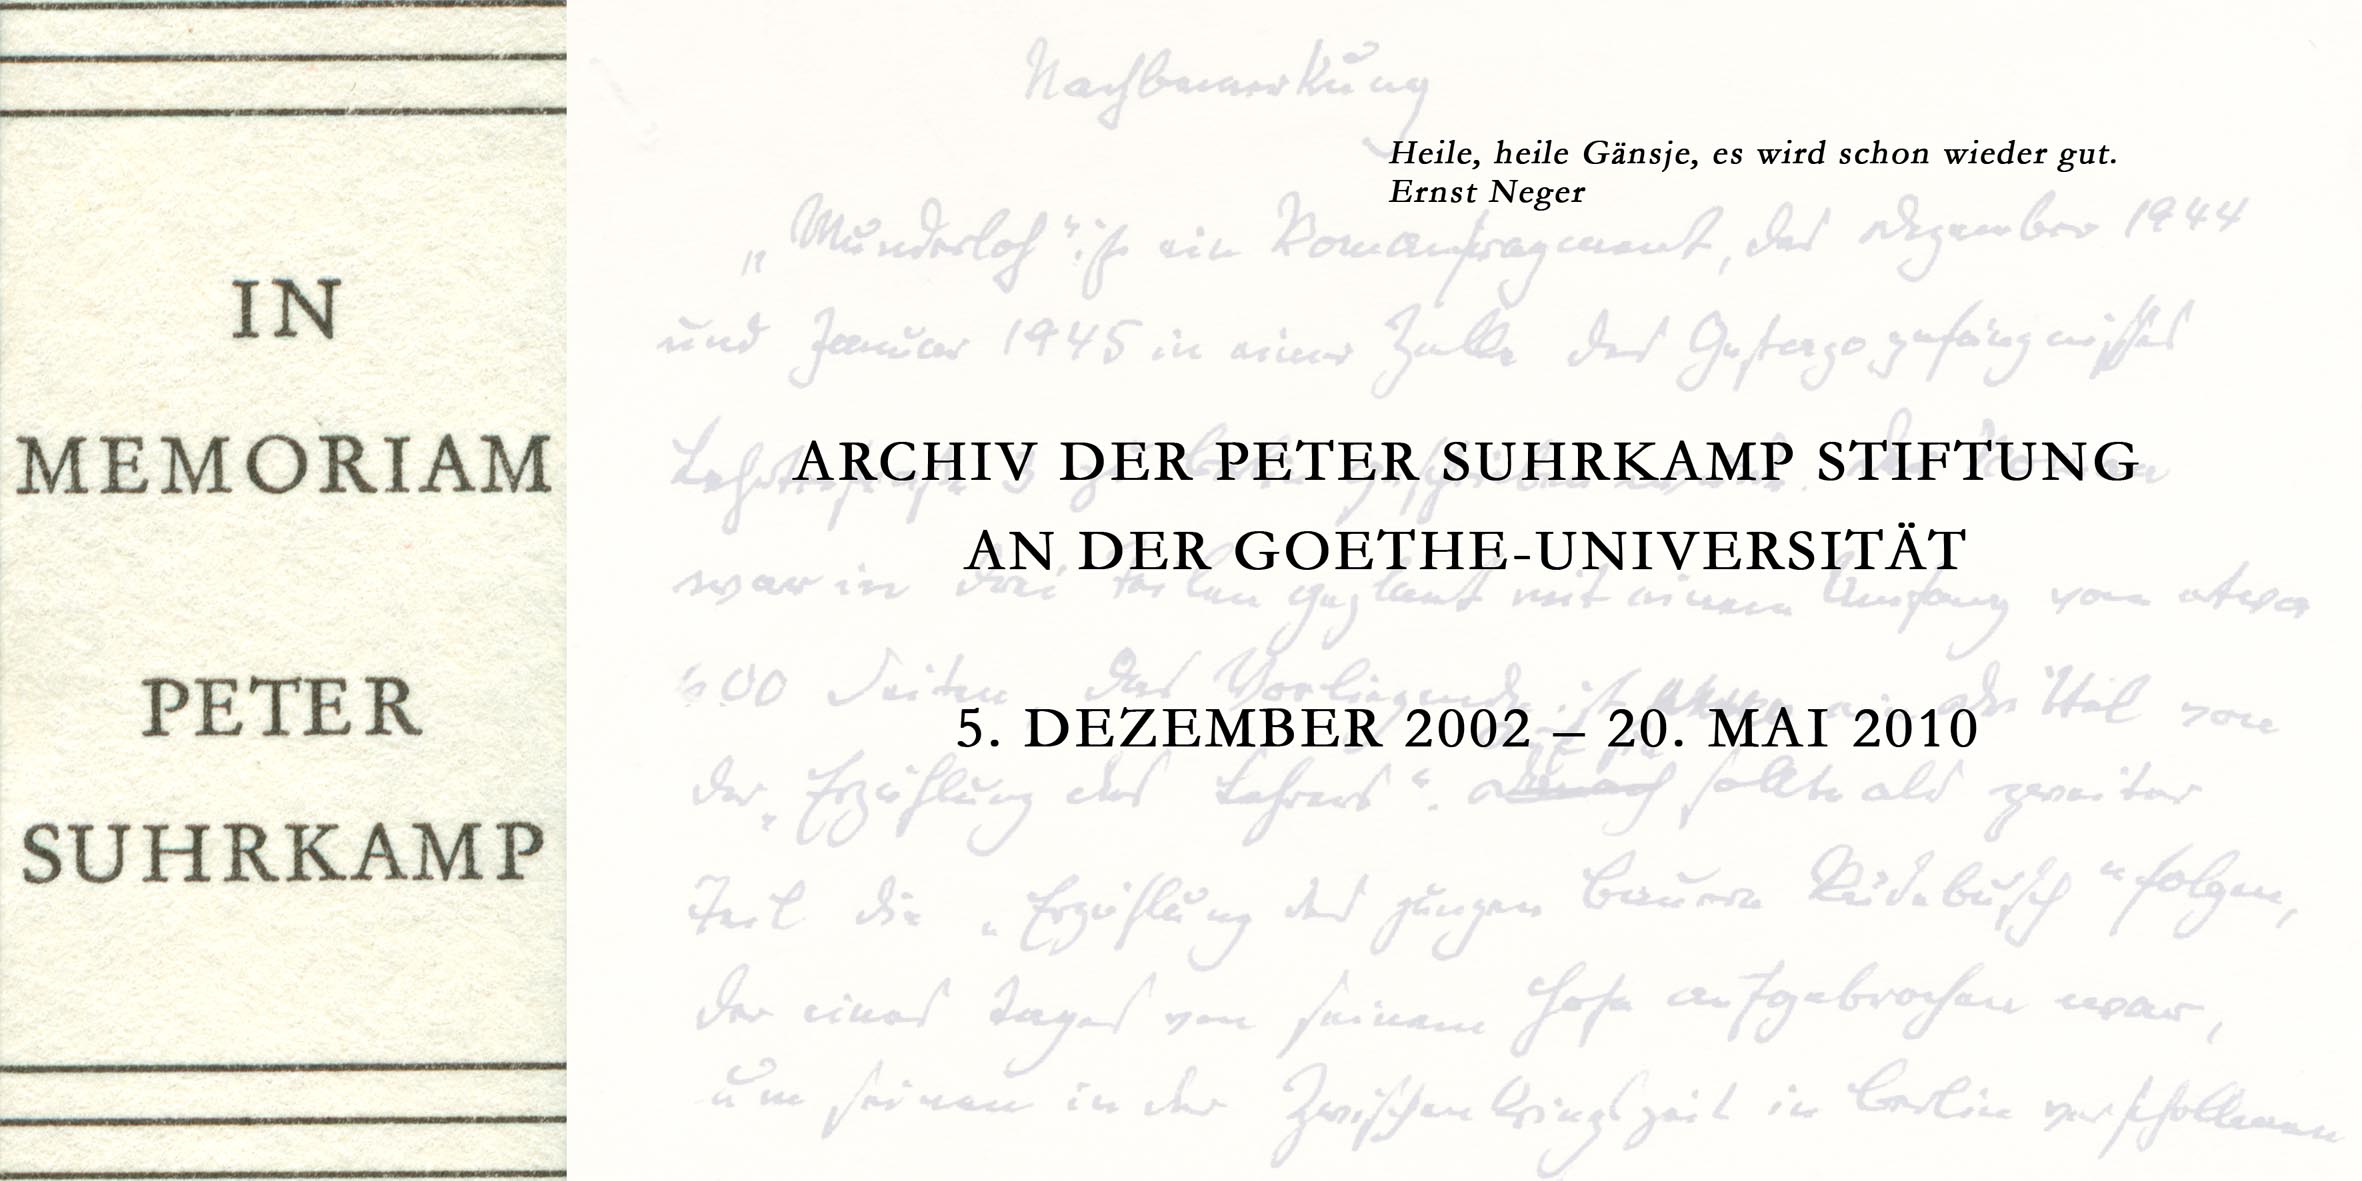 IN
MEMORIAM
PETER
SUHRKAMP
Nachbemerkung
Heile, heile Gänsje, es wird schon wieder gut.
Ernst Neger
„Munderloh“ ist ein Romanfragment, das Dezember 1944
und Januar 1945 in einer Zelle des Gestapogefängnisses
ARCHIV DER PETER SUHRKAMP STIFTUNG
AN DER GOETHE-UNIVERSITÄT
war in drei Teilen geplant mit einem Umfang von etwa
600 Seiten. Das Vorliegende ist ein Teil von
5. DEZEMBER 2002 – 20. MAI 2010
der „Erzählung des Lehrers“. sollte als zweiter
Teil die „Erzählung des jungen Bauern Rüdebusch“ folgen,
der eines Tages von seinem Hofe aufgebrochen war,
um seinen in der Zwischenkriegszeit in Berlin verschollenen